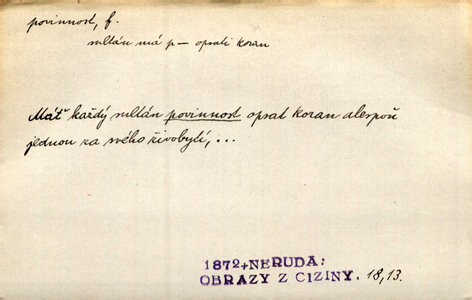 povinnost, f.
sultán má p— opsati koran
Máť každý sultán povinnost opsat koran alespoň
jednou za svého živobytí, ...
1872+NERUDA:
OBRAZY Z CIZINY. 18,13.